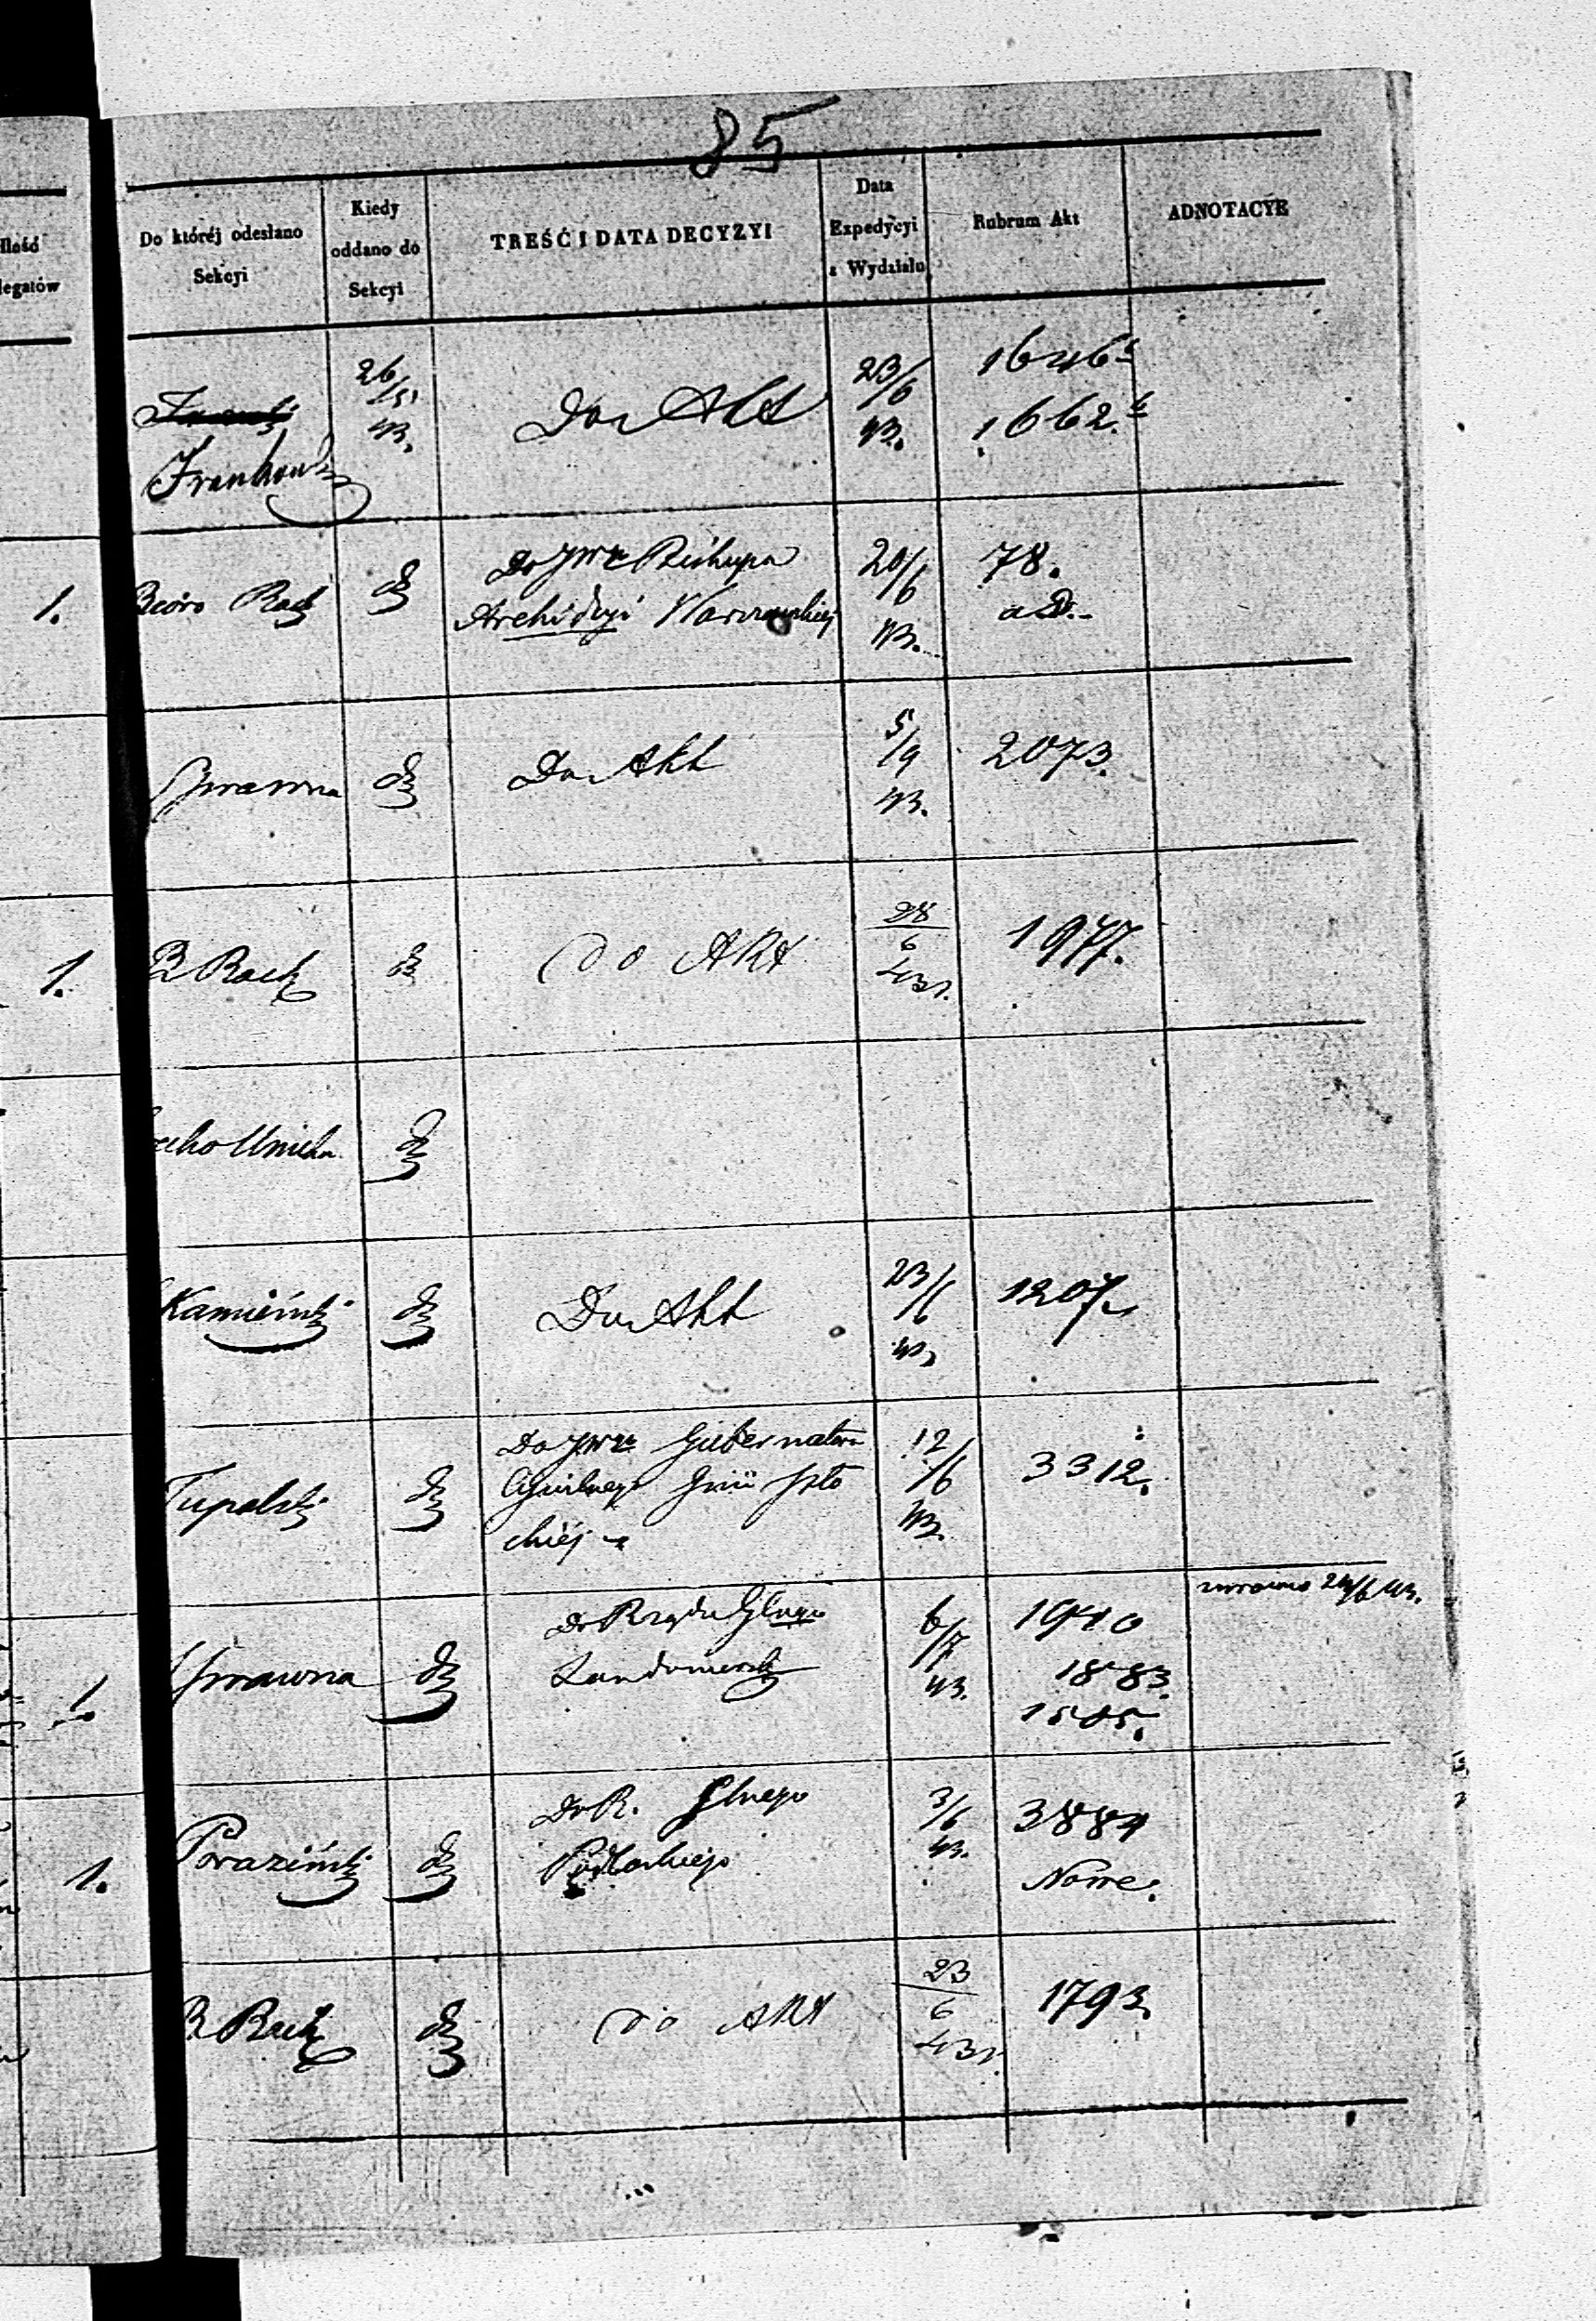 85
Ilość
legatów
Do któréj odesłano
Sekcyi
Kiedy
oddano do
Sekcyi
TREŚĆ I DATA DECYZYI
Data
Expedycyi
z Wydziału
Rubrum Akt
ADNOTACYE
Frankowski
26/5
43.
Do Akt
23/6
43.
1646
1662.
1.
Bióro Rach
Do JWgo Biskupa
Archidyi Warszawskiej
20/6
43.
78.
Sprawna
Do Akt
5/9
43.
2073.
1.
B Rach
Do Akt
28
6
43 r.
1977.
Kamiński
Do Akt
23/6
43
1207.
Tupalski
Do JWgo Gubernatora
Cywilnego Gnii Pło
ckiéj
12/6
43.
3312.
1
Sprawna
Do Rządu Glnego
Sandomiersk
6/7
43.
1940
1883.
1505.
24/6 43.
1.
Poraziński
Do R. Glnego
Podlaskiego
3/6
43.
3884
Nowe.
B Rach
Do Akt
23
6
43 r.
1793.